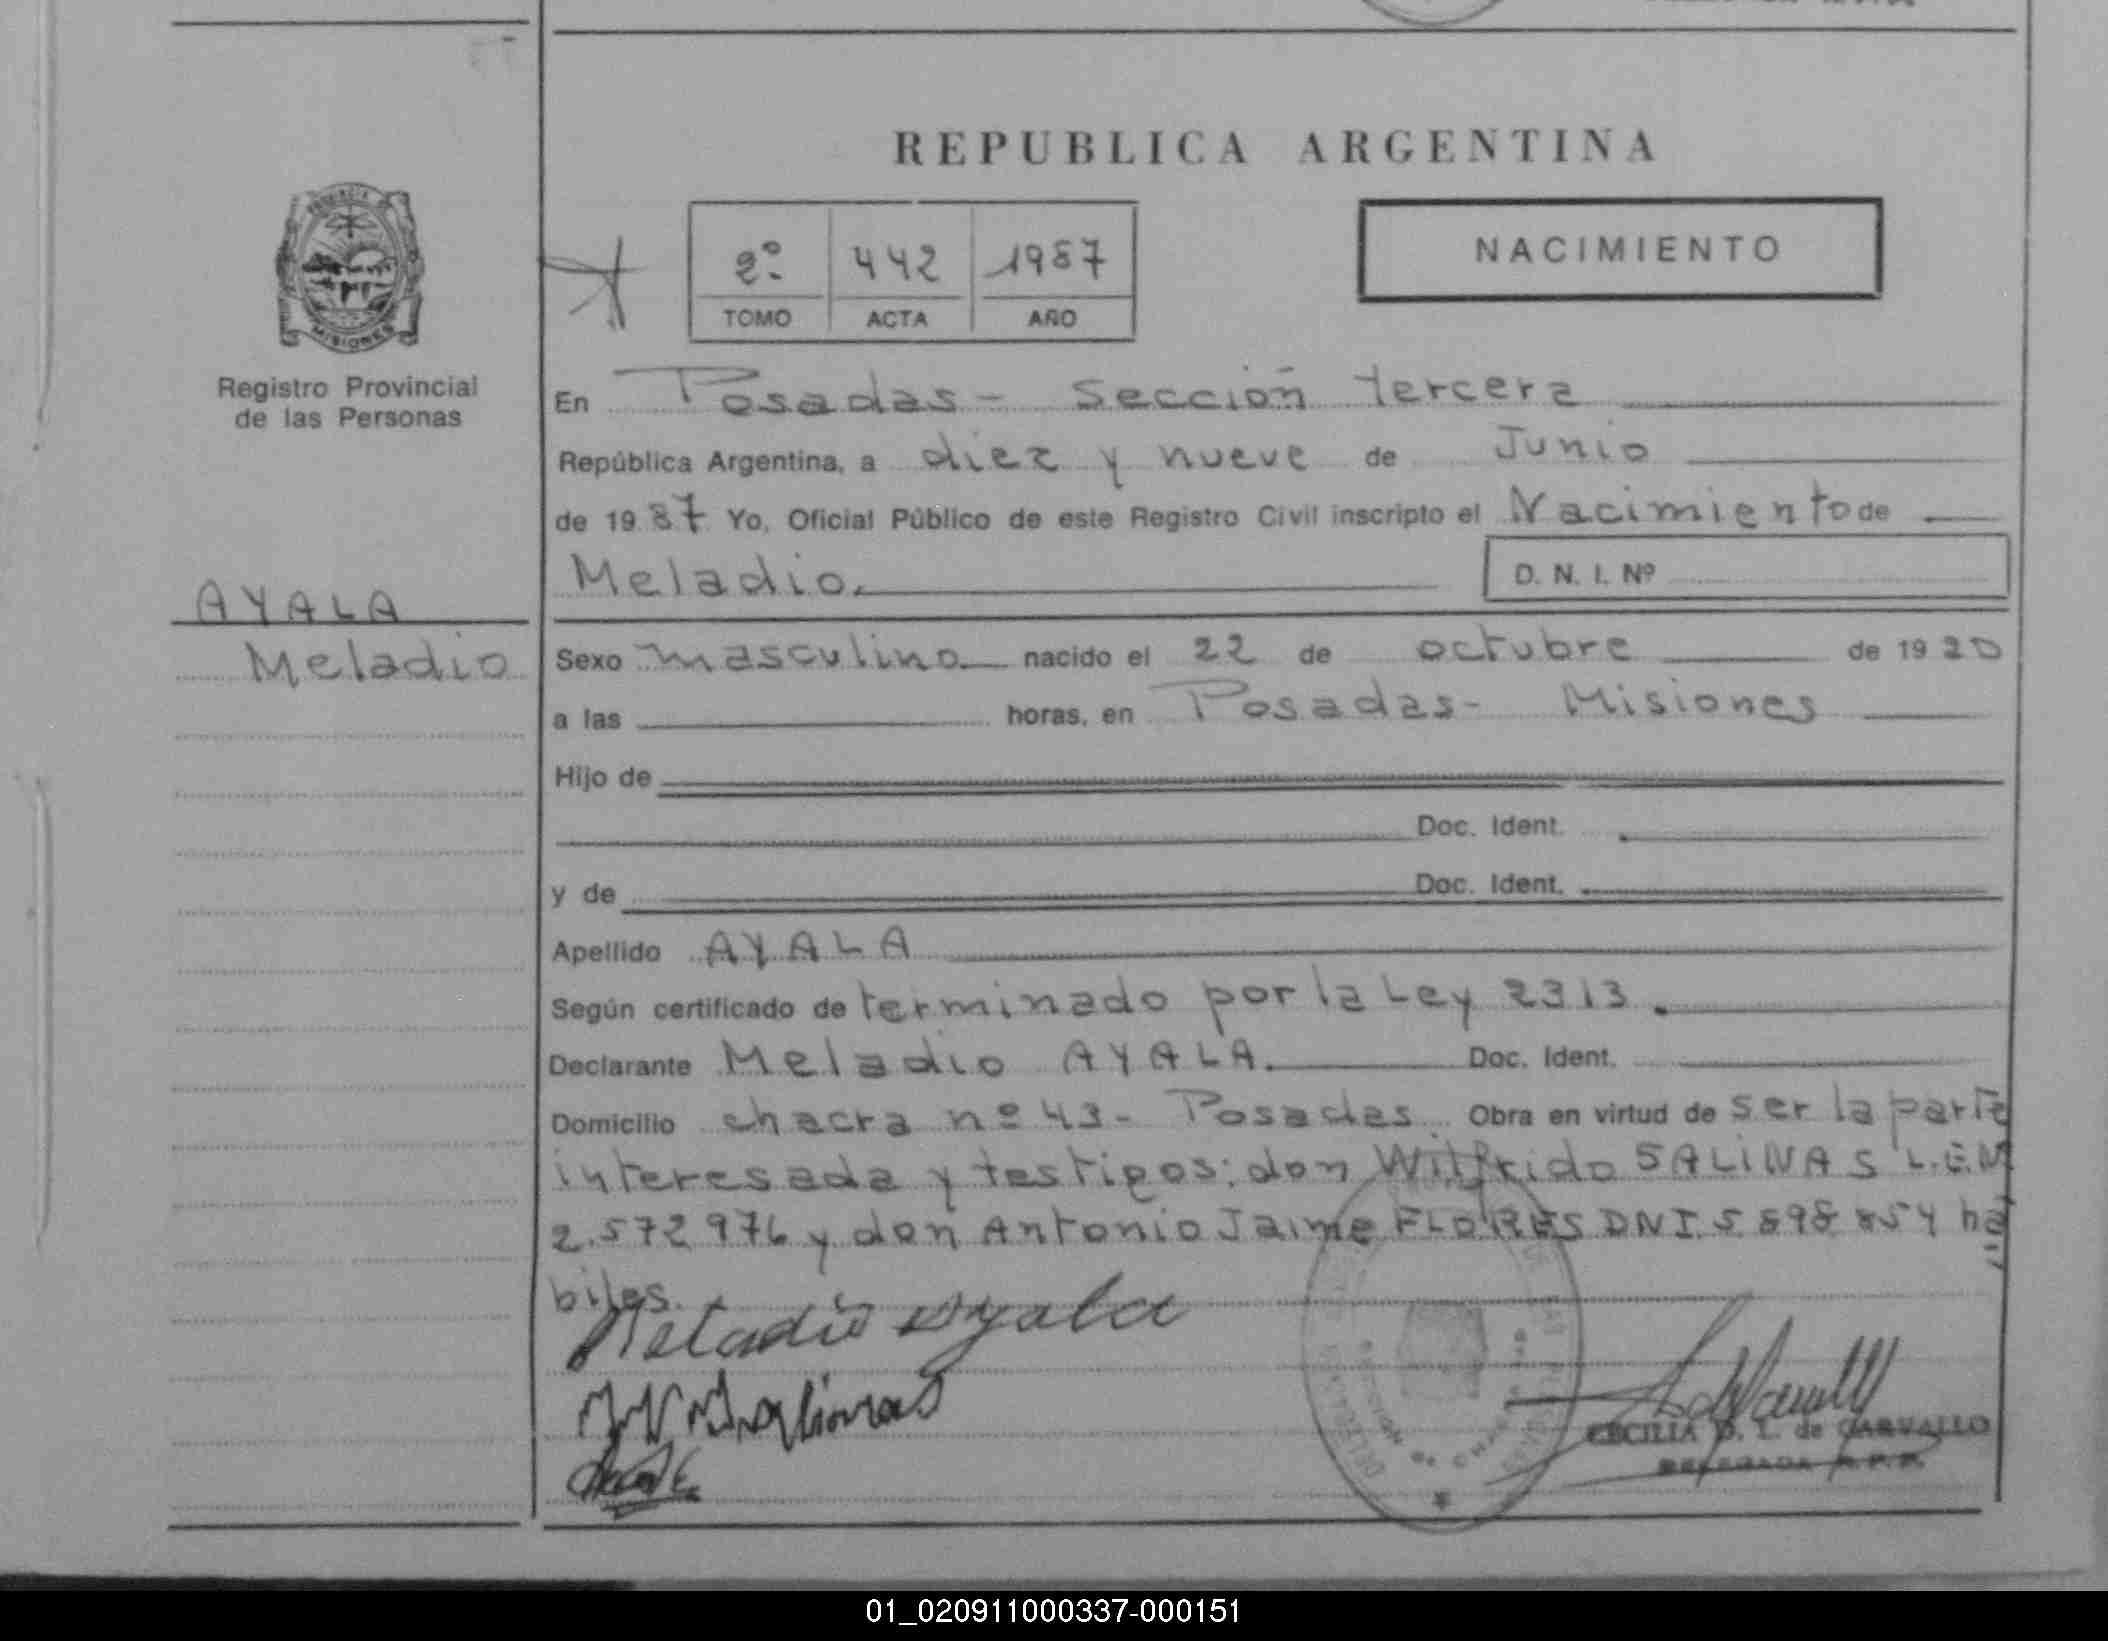 REPUBLICA ARGENTINA
PROVINCIA DE
MISIONES
Registro Provincial
de las Personas
2º 442 1987
TOMO ACTA AÑO
NACIMIENTO
En Posadas- Sección tercera
República Argentina, a diez y nueve de Junio
de 1987 Yo, Oficial Público de este Registro Civil inscripto el Nacimiento de
Meladio. D. N. I. Nº
AYALA
Meladio
Sexo masculino nacido el 22 de octubre de 1920
a las horas, en Posadas- Misiones
Hijo de
Doc. Ident.
y de Doc. Ident.
Apellido AYALA
Según certificado de terminado por la Ley 2313.
Declarante Meladio AYALA. Doc. Ident.
Domicilio chacra nº 43- Posadas Obra en virtud de ser la parte
interesada y testigos: don Wilfrido SALINAS L.E.M
2.572976 y don Antonio Jaime FLORES DNI 5 898 854 há
biles.
Meladio Ayala
Salinas
CECILIA D. L. de CARVALLO
DELEGADA R.P.P.
01_020911000337-000151